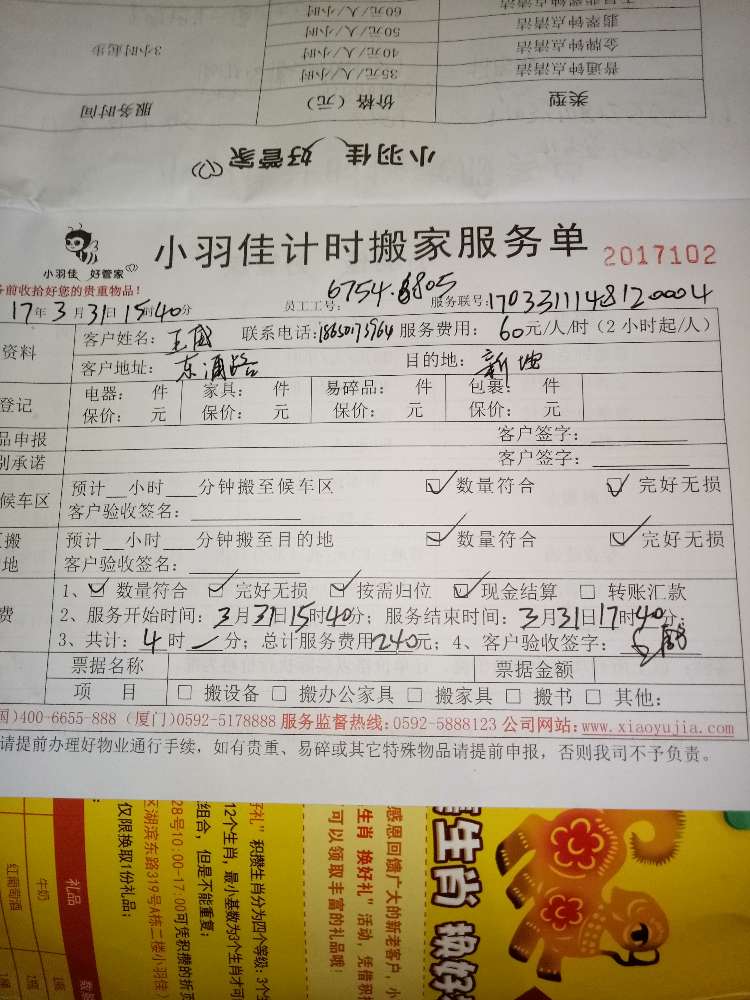 60元/人/小时
翡翠钟点清洁 50元/人/小时
金牌钟点清洁 40元/人/小时 3小时起步
普通钟点清洁 35元/人/小时
类型 价格（元） 服务时间
小羽佳 好管家
小羽佳计时搬家服务单 2017102
小羽佳 好管家
前收拾好您的贵重物品！
17年3月31日15时40分 员工工号：6754.8805 服务联号：1703311148120004
资料 客户姓名：王国 联系电话： 服务费用：60元/人/时（2小时起/人）
客户地址：东浦路 目的地：新
登记 电器： 件 家具： 件 易碎品： 件 包裹： 件
保价： 元 保价： 元 保价： 元 保价： 元
品申报 客户签字：
别承诺 客户签字：
候车区 预计__小时___分钟搬至候车区 ☑ 数量符合 ☑ 完好无损
客户验收签名：
搬 预计__小时___分钟搬至目的地 ☑ 数量符合 ☑ 完好无损
地 客户验收签名：
1、☑ 数量符合 ☑ 完好无损 ☑ 按需归位 ☑ 现金结算 □ 转账汇款
费 2、服务开始时间：3月31日15时40分；服务结束时间：3月31日17时40分.
3、共计：4时一分；总计服务费用240元；4、客户验收签字：
票据名称 票据金额
项 目 □ 搬设备 □ 搬办公家具 □ 搬家具 □ 搬书 □ 其他：
国)400-6655-888 (厦门)0592-5178888 服务监督热线:0592-5888123 公司网站:www.xiaoyujia.com
请提前办理好物业通行手续，如有贵重、易碎或其它特殊物品请提前申报，否则我司不予负责。
生肖 换好
感恩回馈广大的新老客户，小
生肖 换好礼"活动，凭借积
可以领取丰富的礼品哦！
好礼"积攒生肖分为四个等级：3个
12个生肖，最小基数为3个生肖才可
组合，但是不能重复；
28号10:00-17:00可凭积攒的折页
区湖滨东路319号A栋二楼小羽佳）
仅限换取1份礼品；
礼品 数
牛奶 1
红葡萄酒